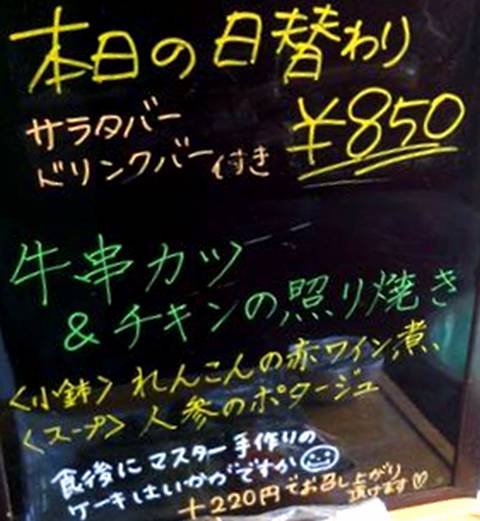 本日の日替わり
サラタバー
ドリンクバー付き ¥850
牛串カツ
&チキンの照り焼き
〈小鉢〉れんこんの赤ワイン煮、
〈スープ〉人参のポタージュ
食後にマスター手作りの
ケーキはいかがですか
+220円でお召し上がり
頂けます♡